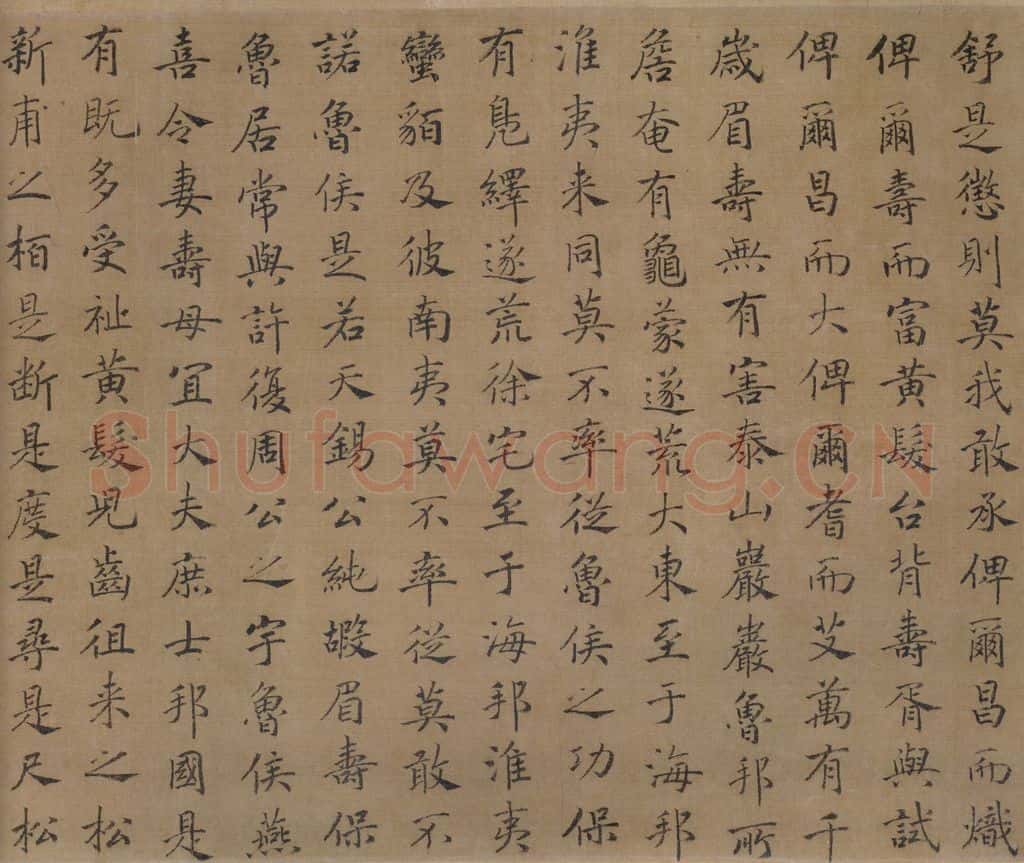 舒是懲則莫我敢承俾爾昌而熾
俾爾壽而富黄髮台背壽胥與試
俾爾昌而大俾爾耆而艾萬有千
歲眉壽無有害泰山巖巖魯邦所
詹奄有龜蒙遂荒大東至于海邦
淮夷来同莫不率從魯侯之功保
有鳧繹遂荒徐宅至于海邦淮夷
蠻貊及彼南夷莫不率從莫敢不
諾魯侯是若天錫公純嘏眉壽保
魯居常與許復周公之宇魯侯燕
喜令妻壽母宜大夫庶士邦國是
有既多受祉黄髮兒齒徂来之松
新甫之栢是断是度是尋是尺松
Shufawang.CN